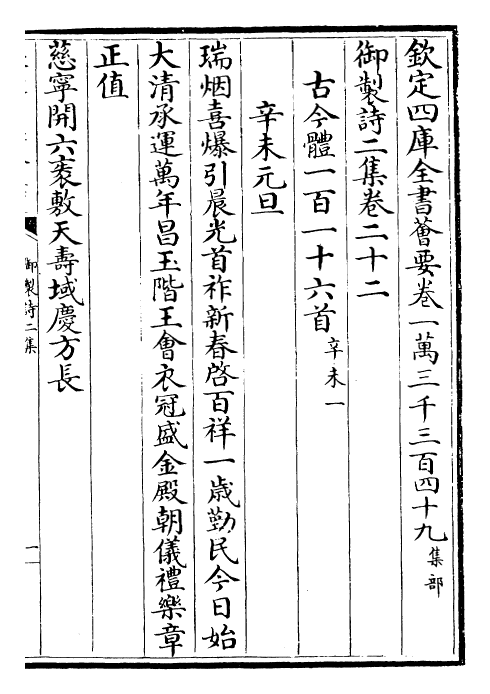 欽定四庫全書薈要卷一萬三千三百四十九集部
御製詩二集卷二十二
古今體一百一十六首辛未一
辛未元旦
瑞烟喜爆引晨光首祚新春啓百祥一歳勤民今日始
大清承運萬年昌玉階王會衣冠盛金殿朝儀禮樂章
正值
慈寧開六袠敷天壽域慶方長
御製詩二集
一